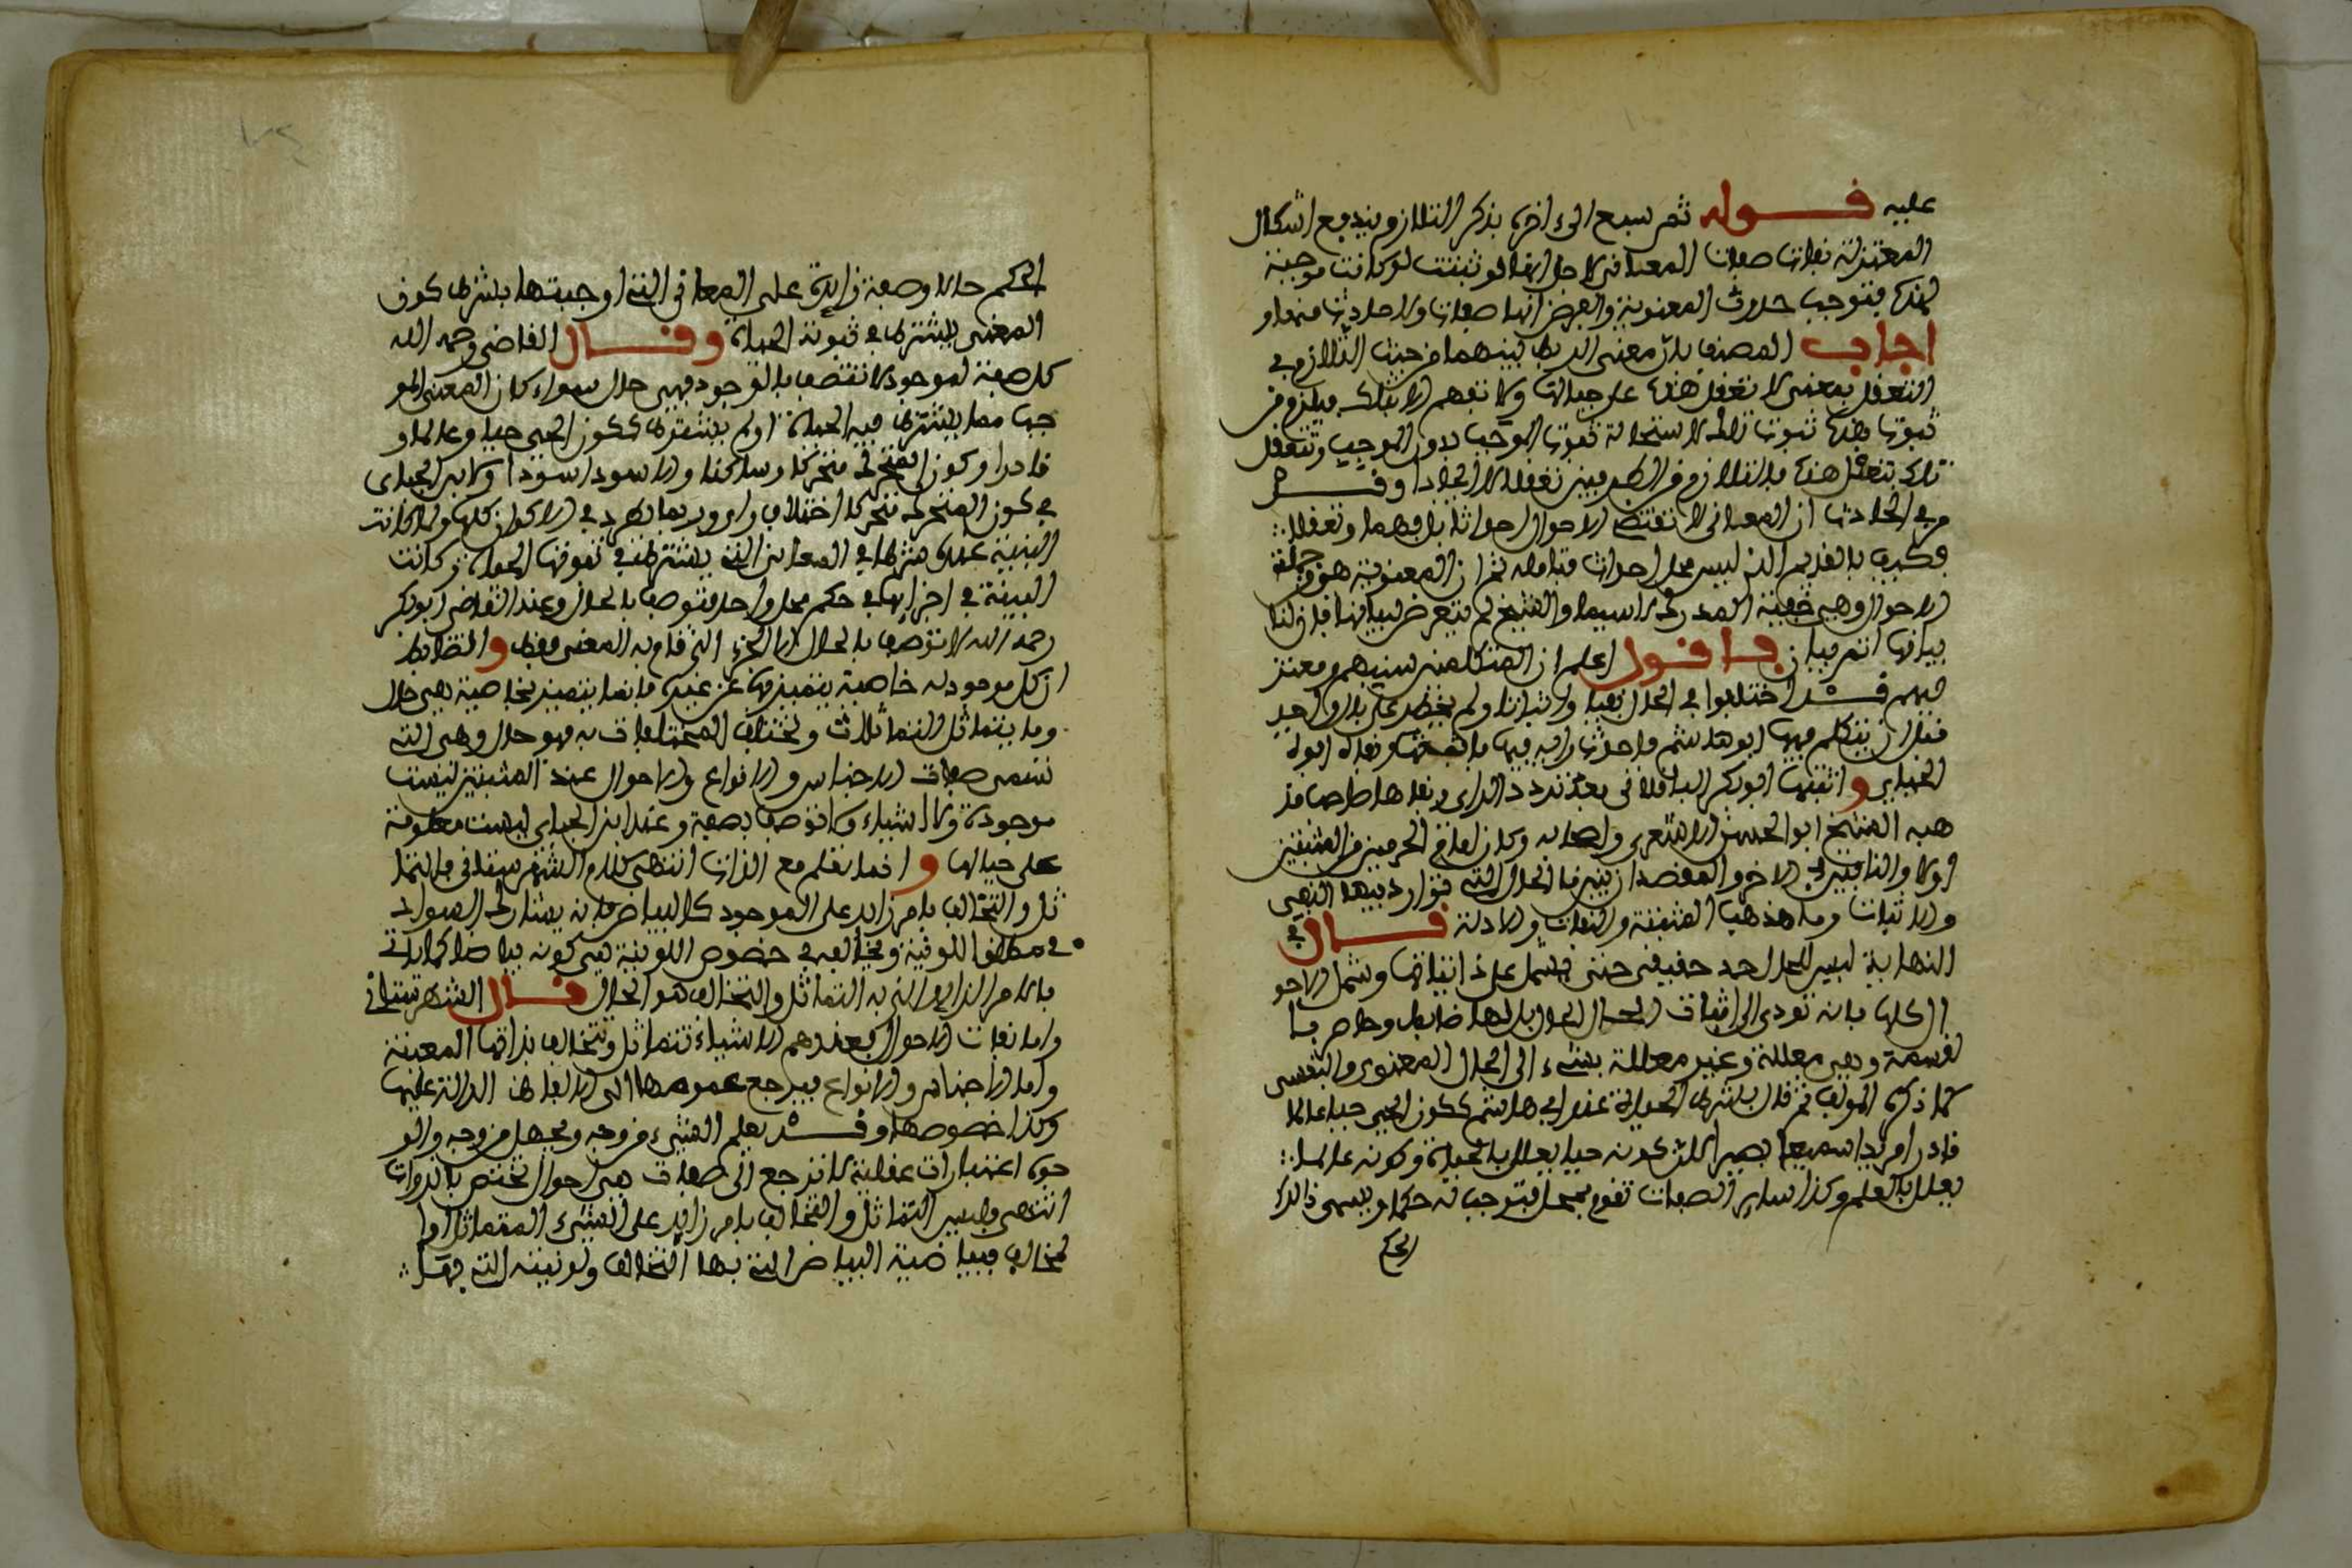 عليه قوله ثم سبع الى اخره بذكر التلازم يندفع اشكال
المعتزلة نفات صفات المعاني لاجل انها لو ثبتت لو كانت موجبة
لهذه فتوجب حدوث المعنوية والفرض انها صفات ولا حادث منها و
اجاب المصنف بان معنى الربط بينهما من حيث التلازم في
التعقل بمعنى لا تعقل هذه على حيالها ولا تفهم الا بتلك فيلزم من
ثبوت هذه ثبوت تلك لاستحالة ثبوت الموجب بدون الموجب وتتعقل
تلك بتعقل هذه فالتلازم من الطرفين تعقلا لا ايجادا وقد
مر في الحادث ان المعاني لا تقتضي الاحوال احداثا بل فهما وتعقلا
فكيف بالقديم الذي ليس محل احداث فتامله ثم ان المعنوية هو من جملة
الاحوال وهي خفية المدرك لاسيما والشيخ لم يتعرض لبيانها فان لنا
بيانها اتم بيان فاقول اعلم ان المتكلمين سنيهم ومعتز
ليهم قد اختلفوا في الحال نفيا واثباتا ولم يخطر على بال واحد
قبل ان يتكلم فيها ابو هاشم فاحدث رايه فيها فاثبتها ونفاه ابوه
الجباي واثبتها ابوبكر الباقلاني بعد تردد الراي ونفاها صاحب مذ
هبه الشيخ ابو الحسن الاشعري واصحابه وكان امام الحرمين من المثبتين
اولا والنافين في الاخر والمقصد ان نبين ما الحال التي توارد فيها النفي
والاثبات وما مذهب المثبتة والنفات والادلة قال في
النهاية ليس للحال حد حقيقي حتى يشمل على ذاتياتها وشمل الاحو
ال كلها فانه تودي الى اثبات الحال للحال بل لها ضابط وحاصر با
لقسمة وهي معللة وغير معللة بشيء الى الحال المعنوي والنفسي
كما ذكره المولف ثم قال بشرط الحياة عند ابي هاشم ككون الحي حيا عالما
قادرا مريدا سميعا بصيرا لان كونه حيا يعلل بالحياة وكونه عالما
يعلل بالعلم وكذا ساير الصفات تقوم بمحل فتوجب له حكما ويسمى ذالك
الحكم
الحكم حالا وصفة زايدة على المعاني التي اوجبتها بشرط كون
المعنى يشترط في ثبوته الحياة وقال القاضي رحمه الله
كل صفة لموجود لا تتصف بالوجود فهي حال سواء كان المعنى المو
جب مما يشترط فيه الحياة او لم يشترط ككون الحي حيا وعالما و
قادرا وكون المتحرك متحركا وساكنا والاسود اسودا ولابن الجباي
في كون المتحرك متحركا اختلاف راي وربما يطرد في الاكوان كلها ولما كانت
البنية عنده شرطا في المعاني التي يشترط في ثبوتها الحياة وكانت
البنية في اجزايها في حكم محل واحد فتوصف بالحال وعند القاضي ابوبكر
رحمه الله لا توصف بالحال الا الجزء الذي قام به المعنى فقط والضابط
ان كل موجود له خاصية يتميز بها عن غيره فانما يتميز بخاصية هي حال
وما يتماثل المتماثلات وتختلف المختلفات به فهو حال وهي التي
تسمى صفات الاجناس والانواع والاحوال عند المثبتين ليست
موجودة ولا اشياء ولا توصف بصفة وعند ابن الجباي ليست معلومة
على حيالها وانما تعلم مع الذات انتهى كلام الشهرستاني فالتما
ثل والتخالف بامر زايد على الموجود كالبياض فانه يشارك السواد
في مطلق اللونية ويخالفه في خصوص اللونية هي كونه بياضا كما ياتي
فالامر الزايد الذي به التماثل والتخالف هو الحال قال الشهرستاني
واما نفات الاحوال فعندهم الاشياء تتماثل وتتخالف بذاتها المعينة
واما الاجناس والانواع فيرجع عمومها الى الالفاظ الدالة عليها
وكذا خصوصها وقد يعلم الشيء من وجه ويجهل من وجه والو
جوه اعتبارات عقلية لا ترجع الى صفات هي احوال تختص بالذوات
انتهى وليس التماثل والتخالف بامر زايد على الشيء المتماثل اوا
لمخالف فبياضية البياض التي بها التخالف ولونيته التي بها